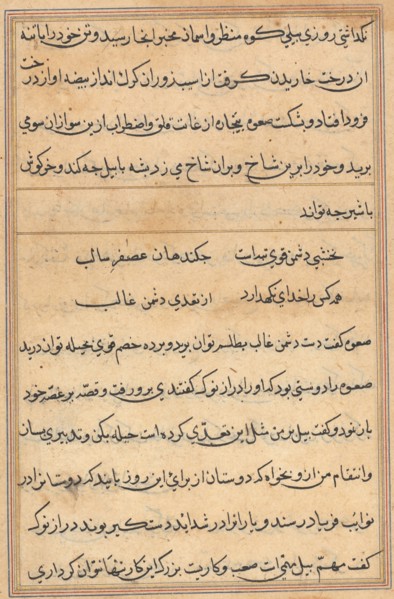 نکداشتی روزی پیلی کوه منظر و آسمان مخبر آنجا رسید و تن خود را با تنه
آن درخت خاریدن کرفت از آسیب زور آن کرک انداز بیضه او از درخت
فرود افتاد و بشکست صعوه بیچاره از غایت قلق و اضطراب ازین سو از آن سو می
پرید و خود را برین شاخ و بران شاخ می زد پشه با پیل چه کند و خرکوش
با شیر چه تواند
نخشبی دشمن قوی تبه است چکند هان عصفر سالب
همه کس را خدای نکهدارد از تعدی دشمن غالب
صعوه کفت دست دشمن غالب بطلسم توان برد و پرده خصم قوی بحیله توان درید
صعوه را دوستی بود که او را دراز نوک کفتندی برو رفت و قصه پر غصه خود
باز نمود و کفت پیل بر من مثل این تعدی کرده است حیله بکن و تدبیری بساز
و انتقام من ازو بخواه که دوستان از برای این روز بایند که دوستانرا در
نوایب فریاد رسند و یارانرا در شداید دست کیر بوند دراز نوک
کفت مهم پیل مهمی است صعب و کاریست بزرک این کار تنها نتوان کرد آری